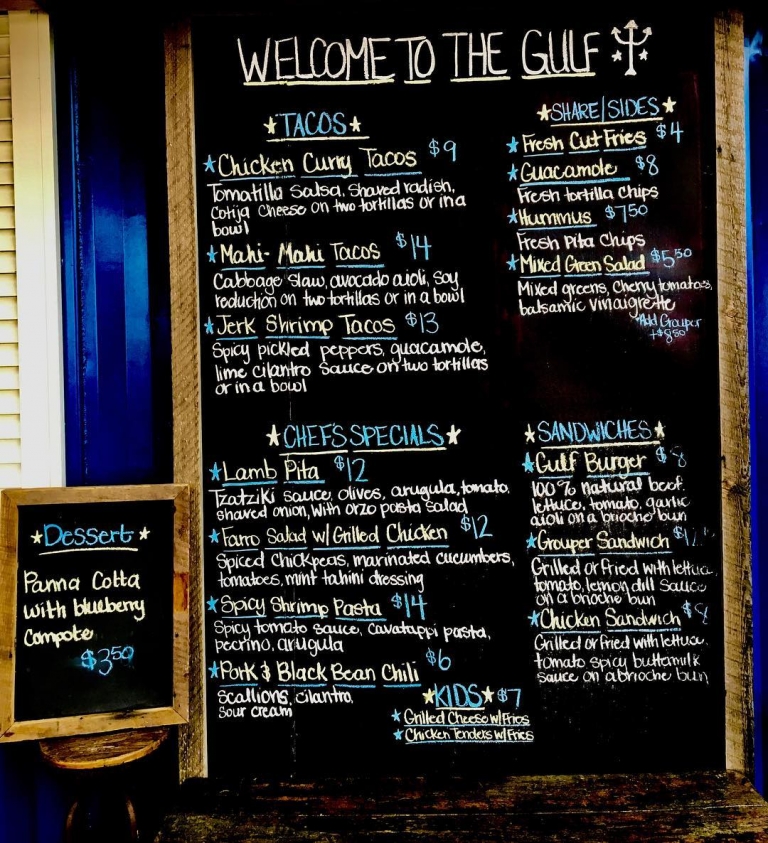 WELCOME TO THE GULF
TACOS
Chicken Curry Tacos $9
Tomatilla Salsa, Shaved radish,
Cotija Cheese on two tortillas or in a
bowl
Mahi-Mahi Tacos $14
Cabbage slaw, avocado aioli, soy
reduction on two tortillas or in a bowl
Jerk Shrimp Tacos $13
Spicy pickled peppers, guacamole,
lime cilantro sauce on two tortillas
or in a bowl
SHARE/SIDES
Fresh Cut Fries $4
Guacamole $8
Fresh tortilla chips
Hummus $7.50
Fresh Pita Chips
Mixed Green Salad $5.50
Mixed greens, cherry tomatoes,
balsamic vinaigrette
Add Grouper
+$8.50
CHEF'S SPECIALS
Lamb Pita $12
Tzatziki sauce, olives, arugula, tomato,
shaved onion, with orzo pasta salad
Farro Salad w/ Grilled Chicken $12
Spiced chickpeas, marinated cucumbers,
tomatoes, mint tahini dressing
Spicy Shrimp Pasta $14
Spicy tomato sauce, cavatappi pasta,
pecrino, arugula
Pork & Black Bean Chili $6
Scallions, cilantro,
sour cream
KIDS $7
Grilled Cheese w/Fries
Chicken Tenders w/Fries
SANDWICHES
Gulf Burger $8
100% natural beef,
lettuce, tomato, garlic
aioli on a brioche bun
Grouper Sandwich
Grilled or Fried with lettuce,
tomato, lemon dill sauce
on a brioche bun
Chicken Sandwich $8
Grilled or Fried with lettuce,
tomato spicy buttermilk
sauce on a brioche bun
Dessert
Panna Cotta
with blueberry
compote
$3.50